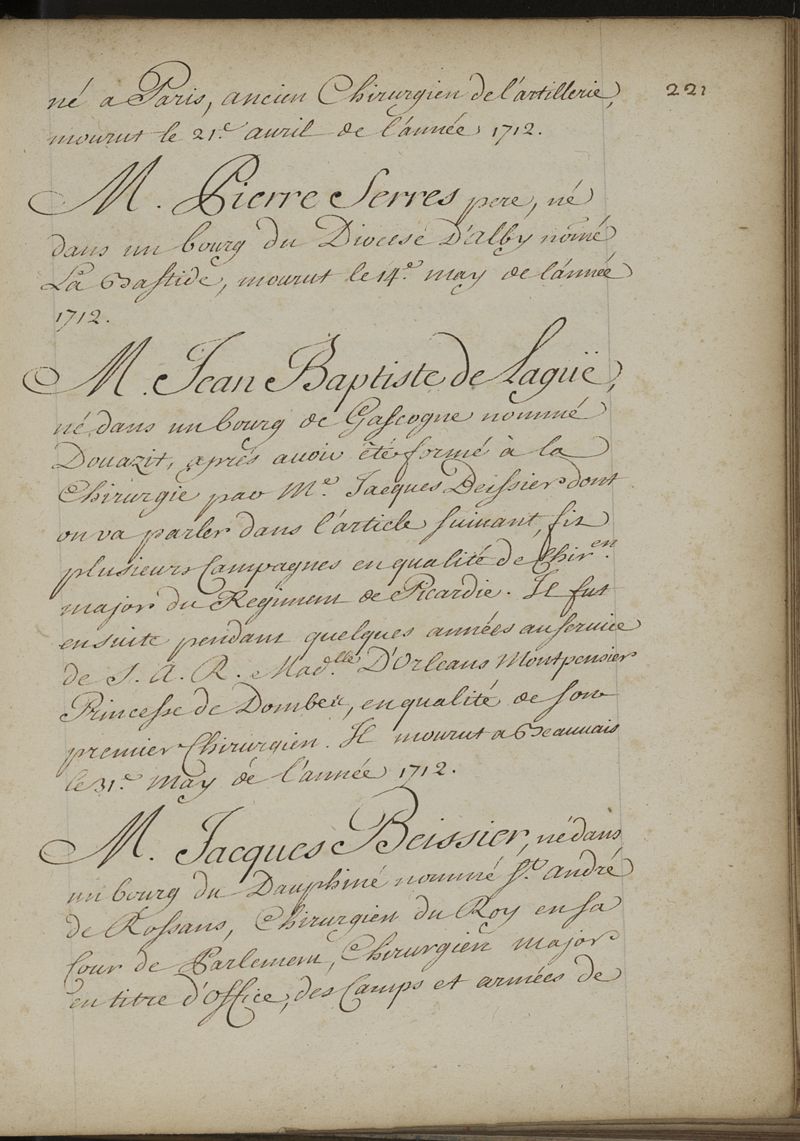 221
né a Paris, ancien Chirurgien de l'artillerie,
mourut le 21.e avril de l'année 1712.
M. Pierre Serres pere, né
dans un bourg du Diocese D'Alby nomé
La Bastide, mourut le 14.e may de l'année
1712.
M. Jean Baptiste de Laguë,
né dans un bourg de Gascogne nommé
Douazit, aprés avoir été formé à la
Chirurgie par M.e Jacques Beissier dont
on va parler dans l'article suivant, fit
plusieurs Campagnes en qualité de Chir.en
major du Regiment de Picardie. Il fut
ensuite pendant quelques années au service
de S. A. R. Mad.lle D'Orleans Montpensier
Princesse de Dombes, en qualité de son
premier Chirurgien. Il mourut a Beauvais
le 31.e May de l'année 1712.
M. Jacques Beissier, né dans
un bourg du Dauphiné nommé S.t André
de Rossans, Chirurgien du Roy en sa
Cour de Parlement, Chirurgien major
en titre d'office, des Camps et armées de